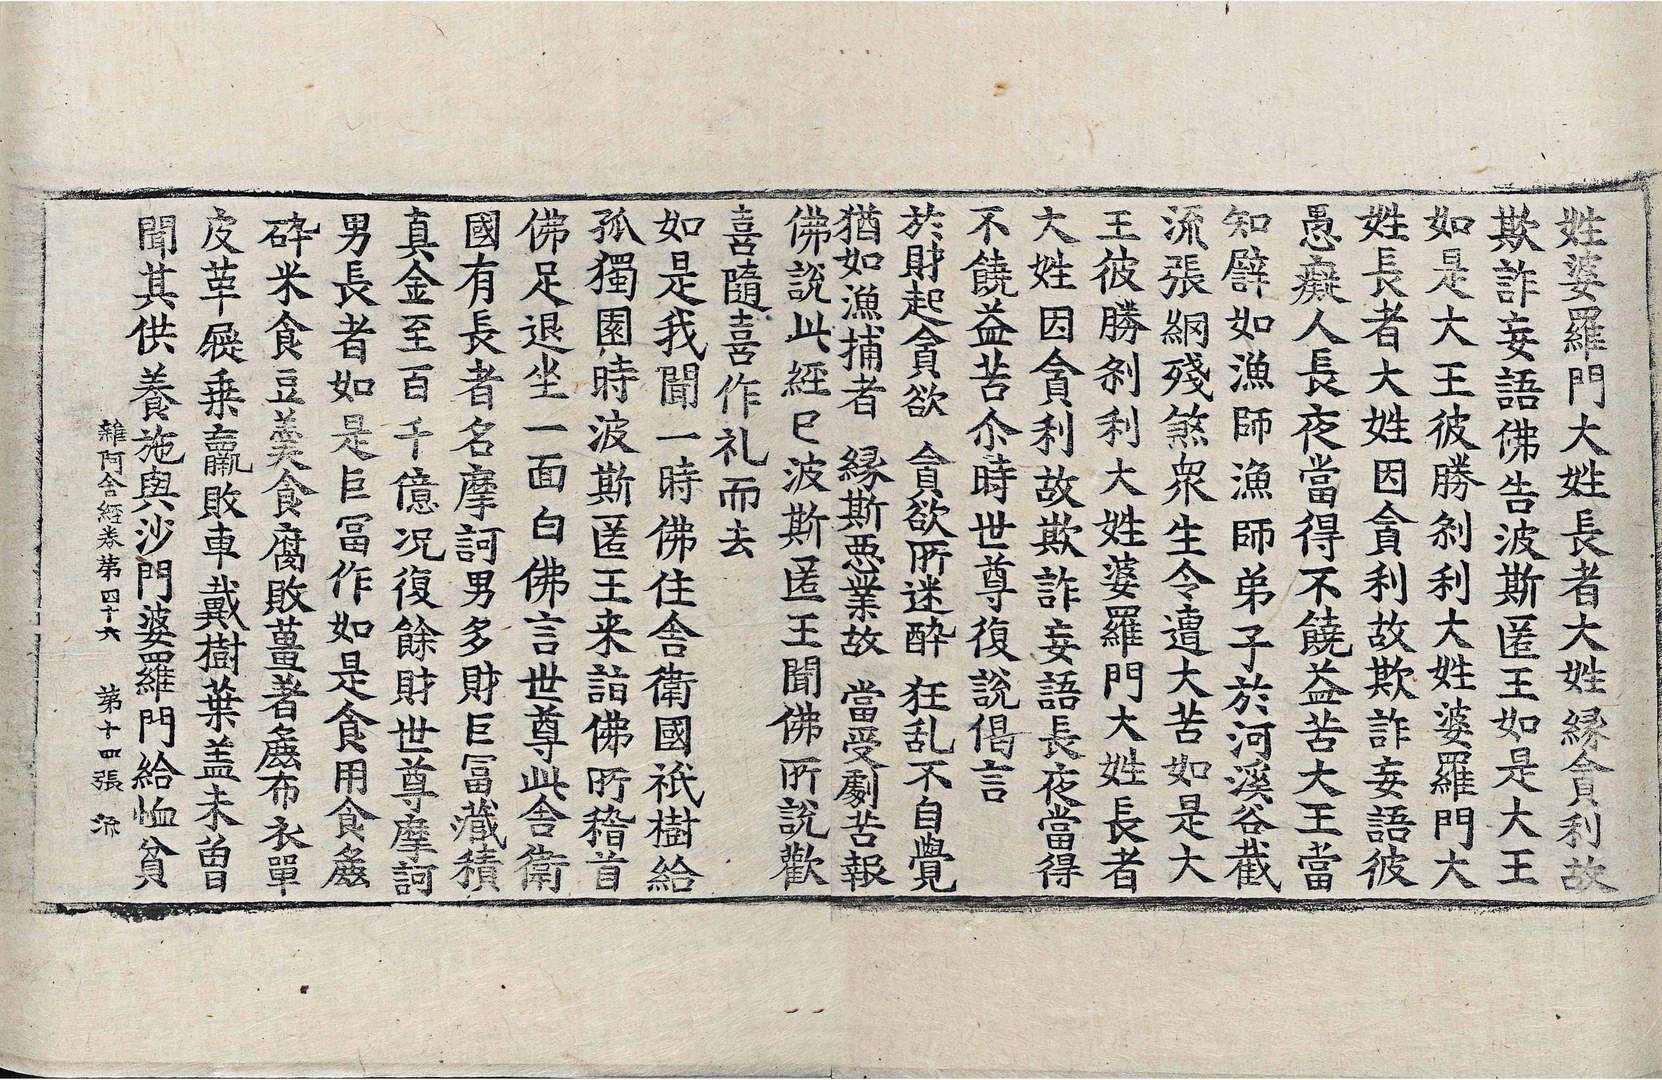 姓婆羅門大姓長者大姓縁貪利故
欺詐妄語佛告波斯匿王如是大王
如是大王彼勝刹利大姓婆羅門大
姓長者大姓因貪利故欺詐妄語彼
愚癡人長夜當得不饒益苦大王當
知譬如漁師漁師弟子於河溪谷截
流張網殘煞衆生令遭大苦如是大
王彼勝刹利大姓婆羅門大姓長者
大姓因貪利故欺詐妄語長夜當得
不饒益苦尒時世尊復說偈言
於財起貪欲 貪欲所迷醉 狂乱不自覺
猶如漁捕者 縁斯悪業故 當受劇苦報
佛說此經已波斯匿王聞佛所說歡
喜隨喜作礼而去
如是我聞一時佛住舍衛國祇樹給
孤獨園時波斯匿王来詣佛所稽首
佛足退坐一面白佛言世尊此舍衛
國有長者名摩訶男多財巨冨藏積
真金至百千億况復餘財世尊摩訶
男長者如是巨冨作如是食用食麁
碎米食豆羹食腐敗薑著麁布衣單
皮革屣乗羸敗車戴樹葉盖未曾
聞其供養施與沙門婆羅門給恤貧
雜阿含經卷第四十六 第十四張 流